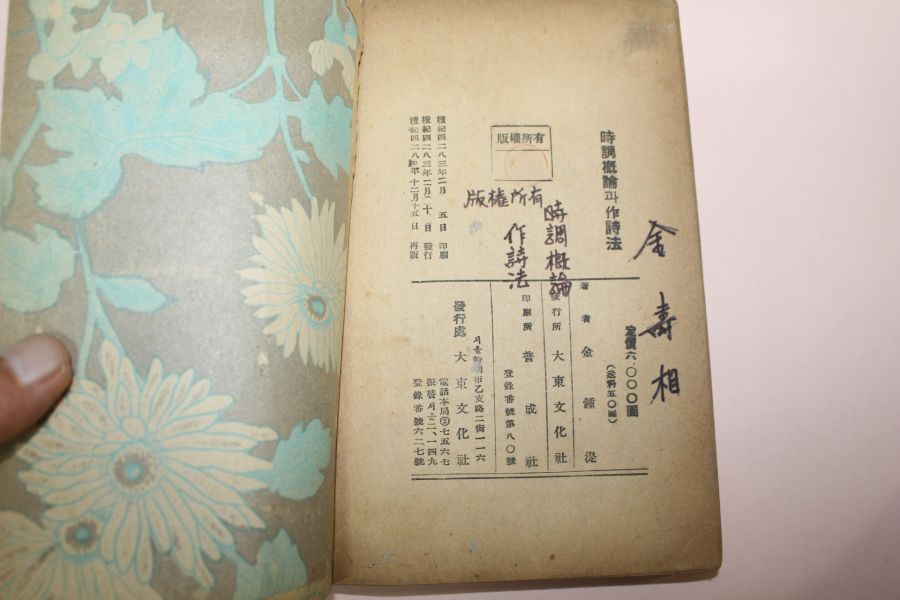 金壽相
時調槪論과作詩法
定價六.〇〇〇圓
(送料五〇圓)
著者 金鍾湜
發行所 大東文化社
印刷所 普成社
登錄番號第八〇號
版所權有
版權所有
時調概論
作詩法
檀紀四二八三年二月 五日 印刷
檀紀四二八三年二月二十日 發行
檀紀四二八四年十二月十五日 再版
서울特別市乙支路二街一一六
發行處 大東文化社
電話本局②七五六七
振替서울二、一四九
登錄番號六二七號